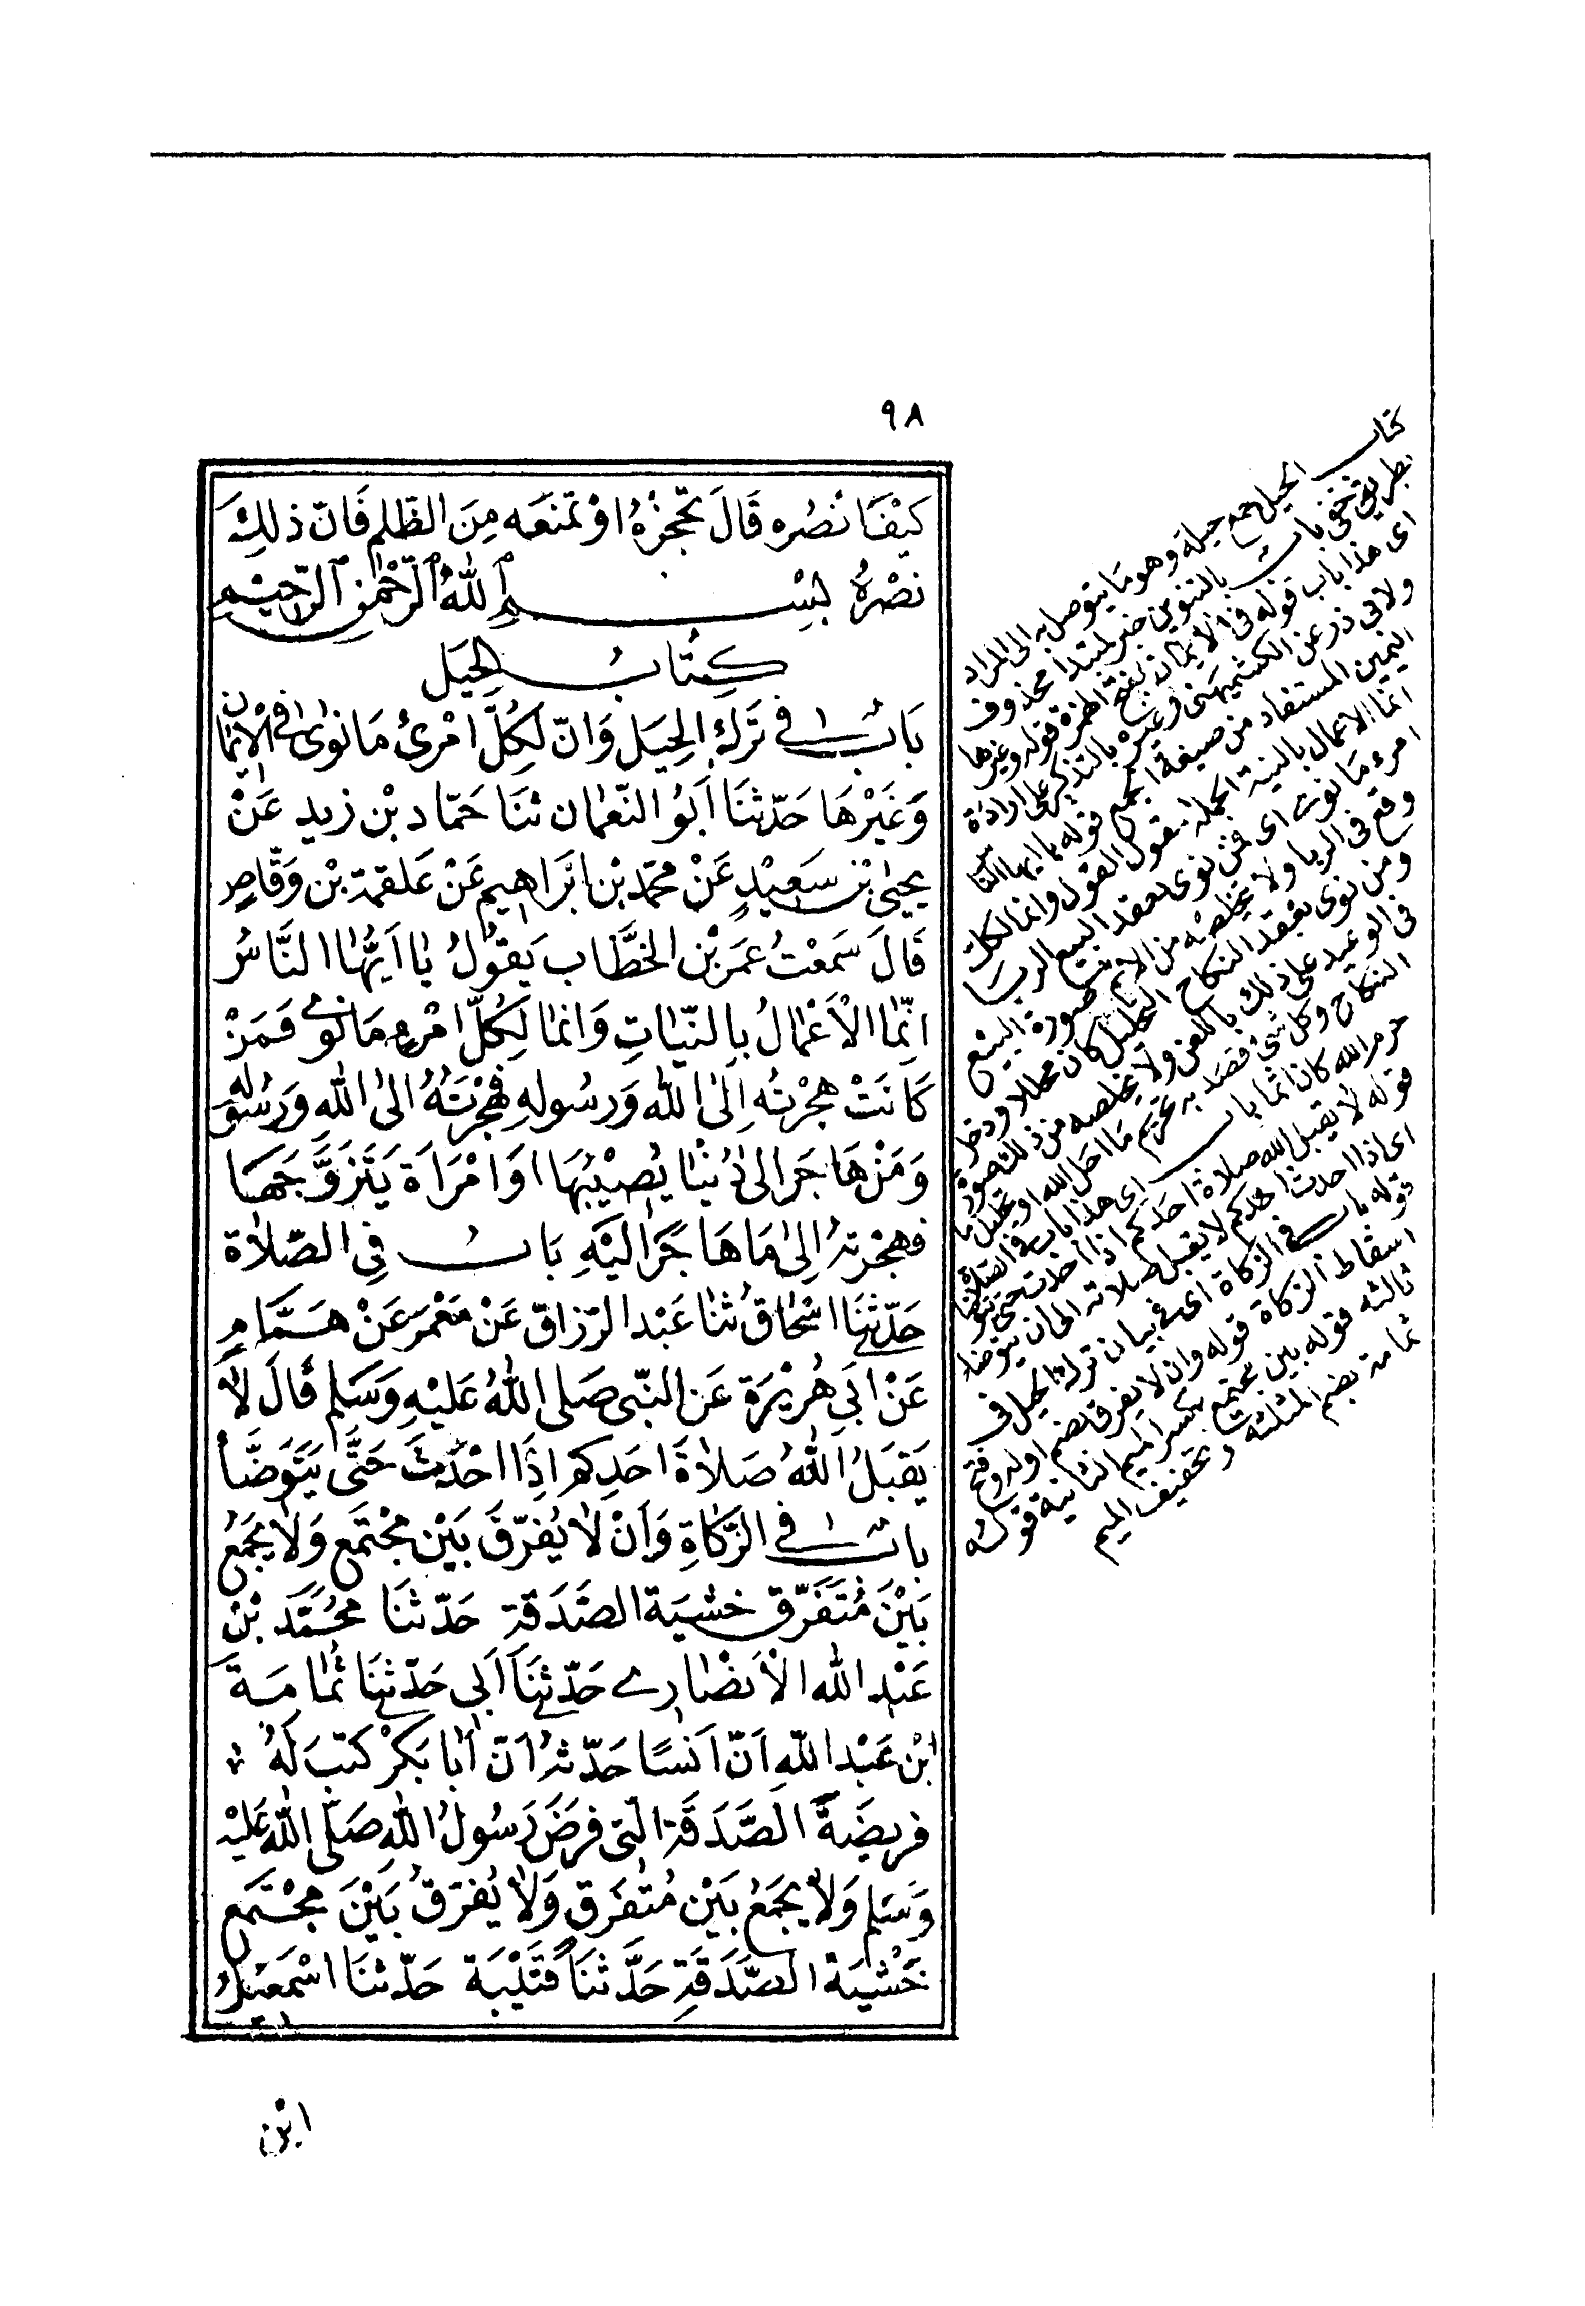 ٩٨
كَيْفَ اَنصُره قَالَ تحْجزُهُ اوْ تمنَعَه مِنَ الظلم فَانّ ذلِكَ
نصْرُهُ بسْم اللهِ الرّحْمٰن الرّحيْم
كِتَابُ الحِيَل
بَابٌ فى تَركِ الحِيَل وَانّ لكُلّ امْرئ مَا نوىٰ فى الاَيْمَان
وَغَيْرهَا حَدّثنَا اَبُو النّعمان ثنَا حَمّاد بْن زيد عَنْ
يحيىٰ بْن سَعِيْدٍ عَنْ محمّد بن ابْرَاهيم عَنْ عَلقمة بْن وَقّاصٍ
قَالَ سَمعْتُ عمَر بْن الخطَّاب يَقوُلُ يَا اَيّهَا النَّاسُ
انّمَا الاَعْمَالُ بِالنيّاتِ وَانمَا لِكُلّ امْرءٍ مَا نوى فمَنْ
كَانَتْ هِجْرتُه اِلىٰ الله وَرسُولهِ فهِجْرَتهُ الىٰ اللهِ وَرسُولهِ
وَمَنْ هَاجَر الىٰ دُنيَا يُصِيْبُهَا اوَ امْرَاَة يَتَزوَّجهَا
فهِجْرتهُ اِلىٰ مَا هَاجَرَ اليَهِ بَابٌ فِى الصّلاة
حَدّثنَا اسْحَاقُ ثنَا عَبْد الرّزاق عَنْ مَعْمَر عَنْ هَمَّامٍ
عَنْ ابَى هُريْرَة عَن النّبى صَلى اللهُ عَليْهِ وَسَلم قَالَ لاَ
يَقبَلُ اللهُ صَلاةَ احَدِكم اِذَا احْدَثَ حَتَّى يَتَوَضَّأ
بابٌ فى الزّكاةِ وَاَنْ لاَ يُفرّقَ بَيْن مُجْتَمَع وَلاَ يجمَعُ
بَيْنَ مُتَفَرّق خشيَة الصّدَقة حَدّثنَا مُحَمَّد بْن
عَبْد الله الأنصَارى حَدّثنَا اَبى حَدّثنَا ثُمَامَةَ
ابْن عَبْد اللهِ اَنّ اَنسًا حَدّثهُ اَنّ اَبا بَكرْ كتَبَ لَهُ
فريضَةَ الصَّدَقَة التى فرَضَ رَسُولُ اللهِ صَلّى اللهُ عَليْهِ
وَسَلم وَلاَ يجمَعُ بَيْن مُتفرَقٍ وَلاَ يُفرّقُ بَيْنَ مجْتمَعٍ
خَشْيَة الصَّدَقَةِ حَدَّثنَا قُتَيْبَة حَدّثنَا اسْمَعيْلُ
ابْن
كتاب الحيل جمع حيلة وهو ما يتوصل به الى المراد
بطريق خفى باب بالتنوين خبر لمبتدأ محذوف
اى هذا باب قوله فى الايمان بفتح الهمزة قوله وغيرها
ولابى ذر عن الكشميهنى وغيره بالتذكير على ارادة
اليمين المستفاد من صيغة الجمع قوله يا ايها الناس
انما الاعمال بالنية الجملة مقول القول وانما لكل
امرء ما نوى اى فمن نوى بعقد البيع الربا
وقع فى الربا ولا يخلصه من الاثم صورة البيع
ومن نوى بعقد النكاح التحليل كان محللا ودخل
فى الوعيد على ذلك باللعن ولا يخلصه من ذلك صورة
النكاح وكل شئ قصد به تحريم ما احل الله او تحليل ما
حرم الله كان اثما باب اى هذا باب فى الصلاة
قوله لا يقبل الله صلاة احدكم اذا احدث حتى يتوضأ
اى اذا احدث احدكم لا يقبل صلاته الى ان يتوضأ
قوله باب فى الزكاة اى فى بيان ترك الحيل فى
اسقاط الزكاة قوله وان لا يفرق بضم اوله وفتح
ثالثه قوله بين مجتمع بكسر الميم الثانية قوله
ثمامة بضم المثلثة وتخفيف الميم